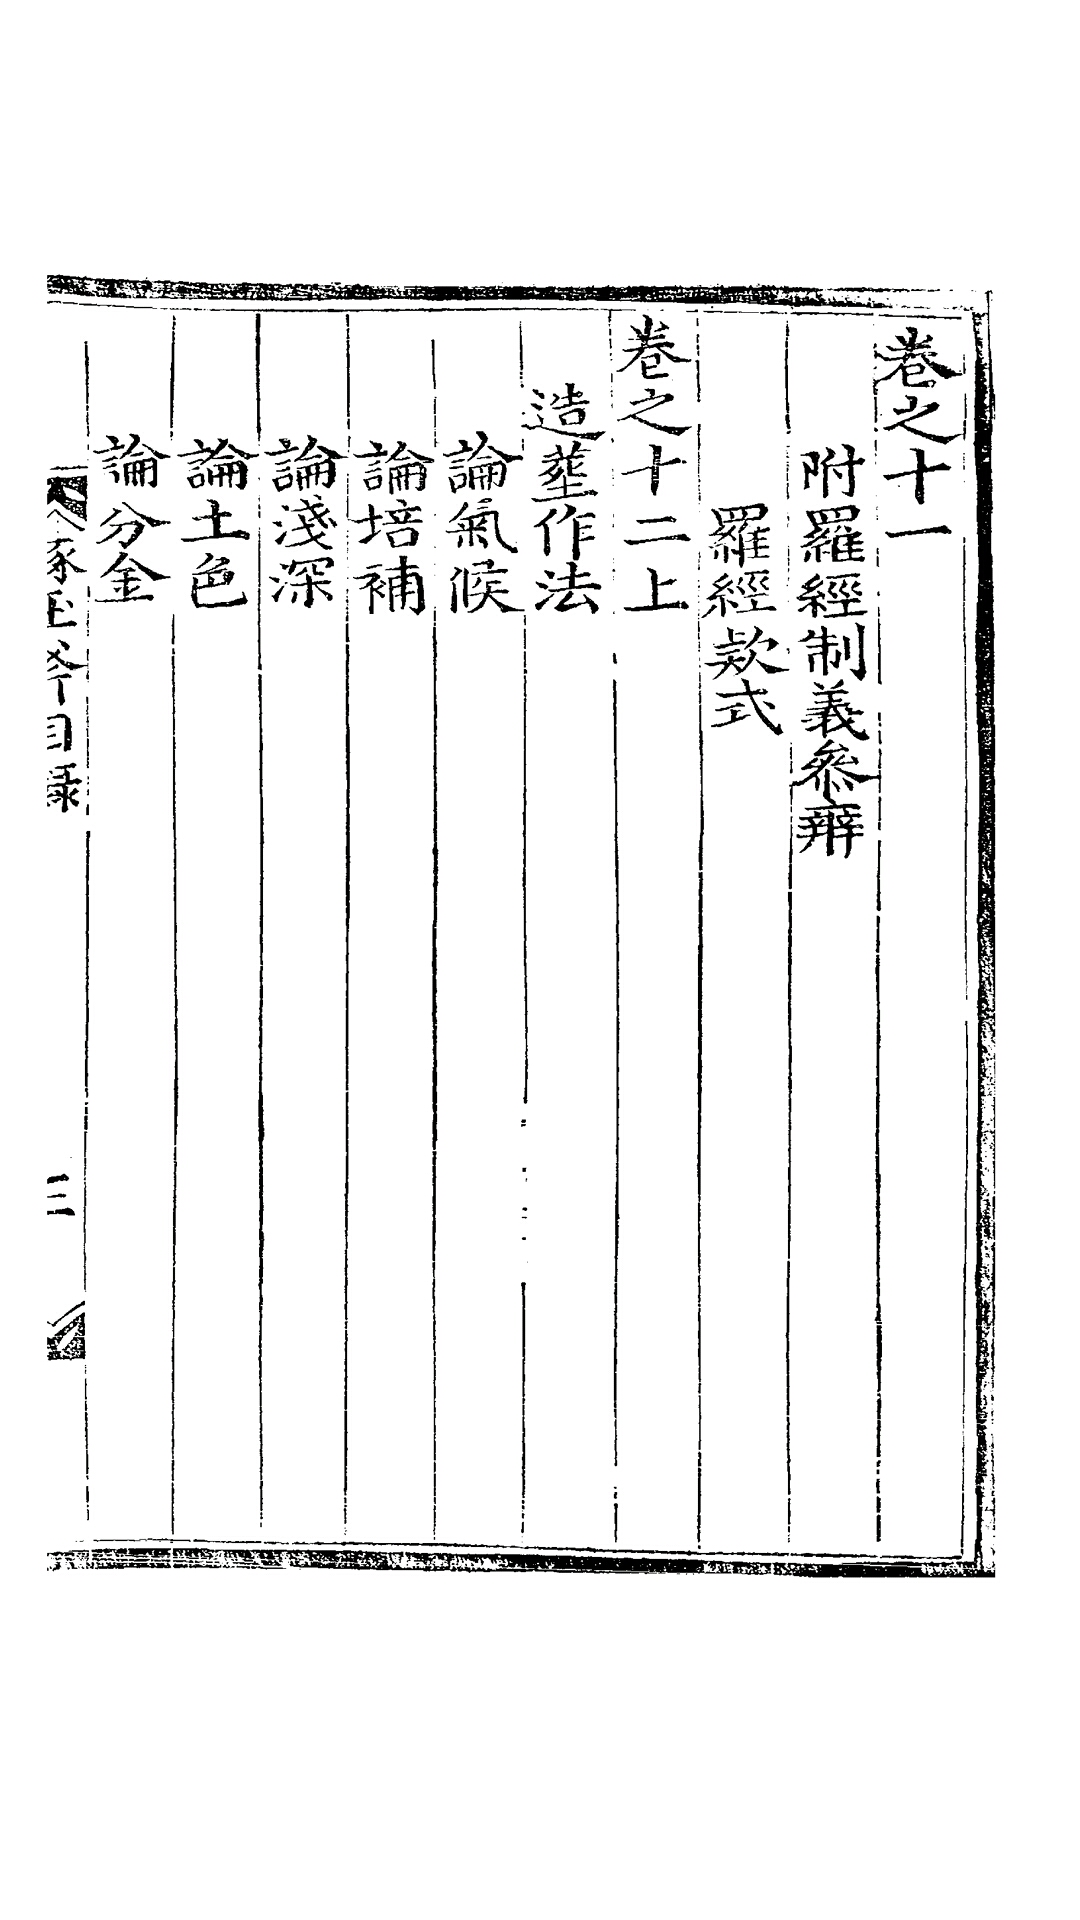 卷之十一
附羅經制義叅辨
羅經欵式
卷之十二上
造塟作法
論氣候
論培補
論淺深
論土色
論分金
琢玉斧目錄
三